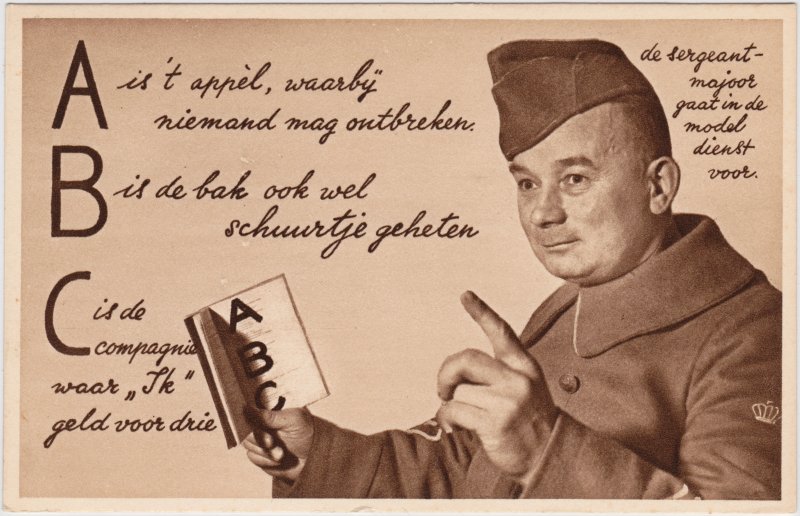 A is 't appèl, waarbij
niemand mag ontbreken.
B is de bak ook wel
schuurtje geheten
C is de
compagnie
waar „Ik"
geld voor drie
ABC
de sergeant-
majoor
gaat in de
model
dienst
voor.